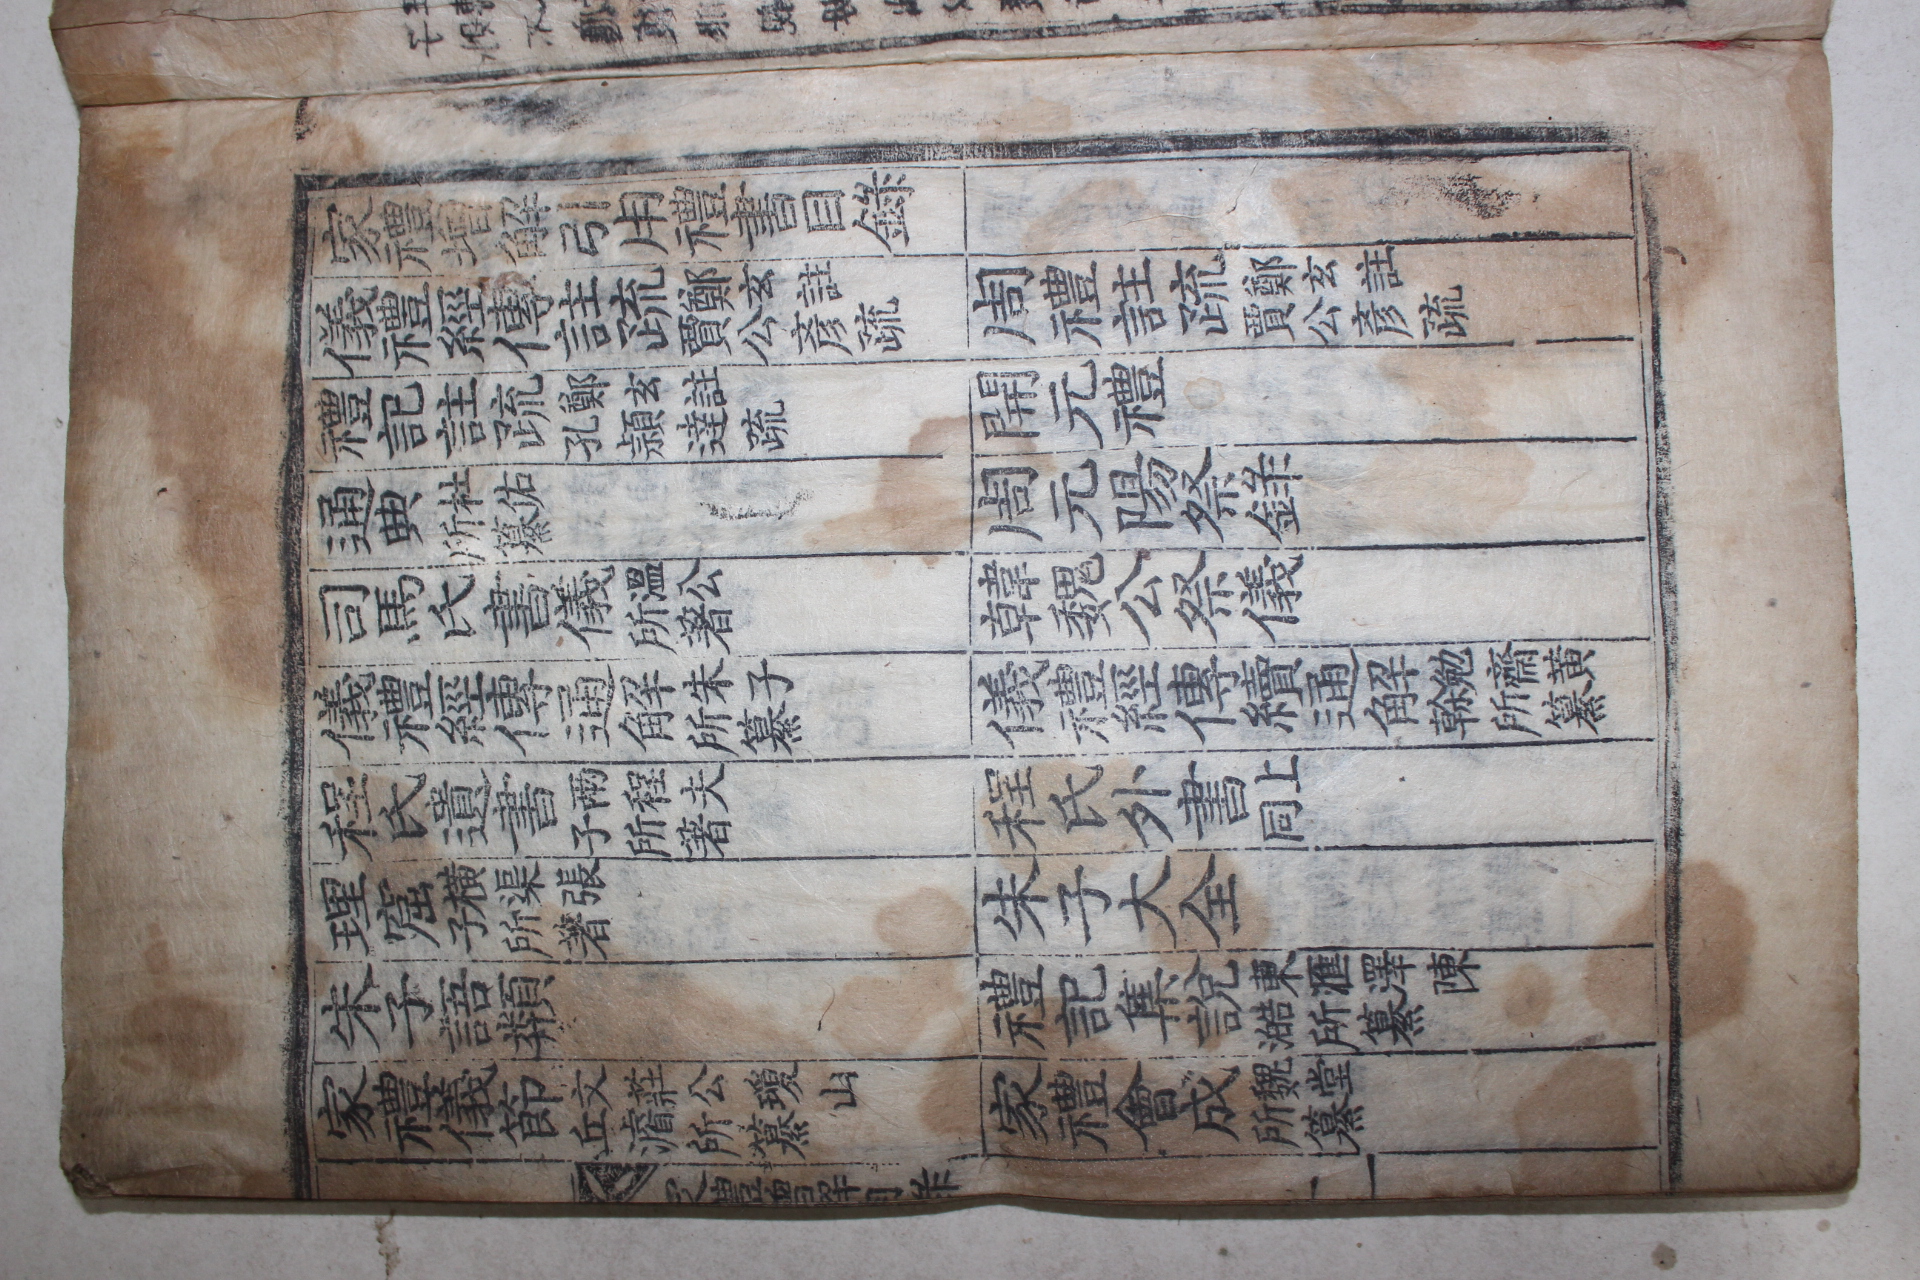 家禮增解引用禮書目錄
儀禮經傳註疏 鄭玄註賈公彥疏 周禮註疏 鄭玄註賈公彥疏
禮記註疏 鄭玄註孔穎達疏 開元禮
通典 杜佑所纂 周元陽祭錄
司馬氏書儀 溫公所著 韓魏公祭儀
儀禮經傳通解 朱子所纂 儀禮經傳續通解 勉齋黃榦所纂
程氏遺書 兩程夫子所著 程氏外書 同上
理窟 橫渠張子所著 朱子大全
朱子語類 禮記集說 東匯澤陳澔所纂
家禮儀節 文莊公瓊山丘濬所纂 家禮會成 魏堂所纂